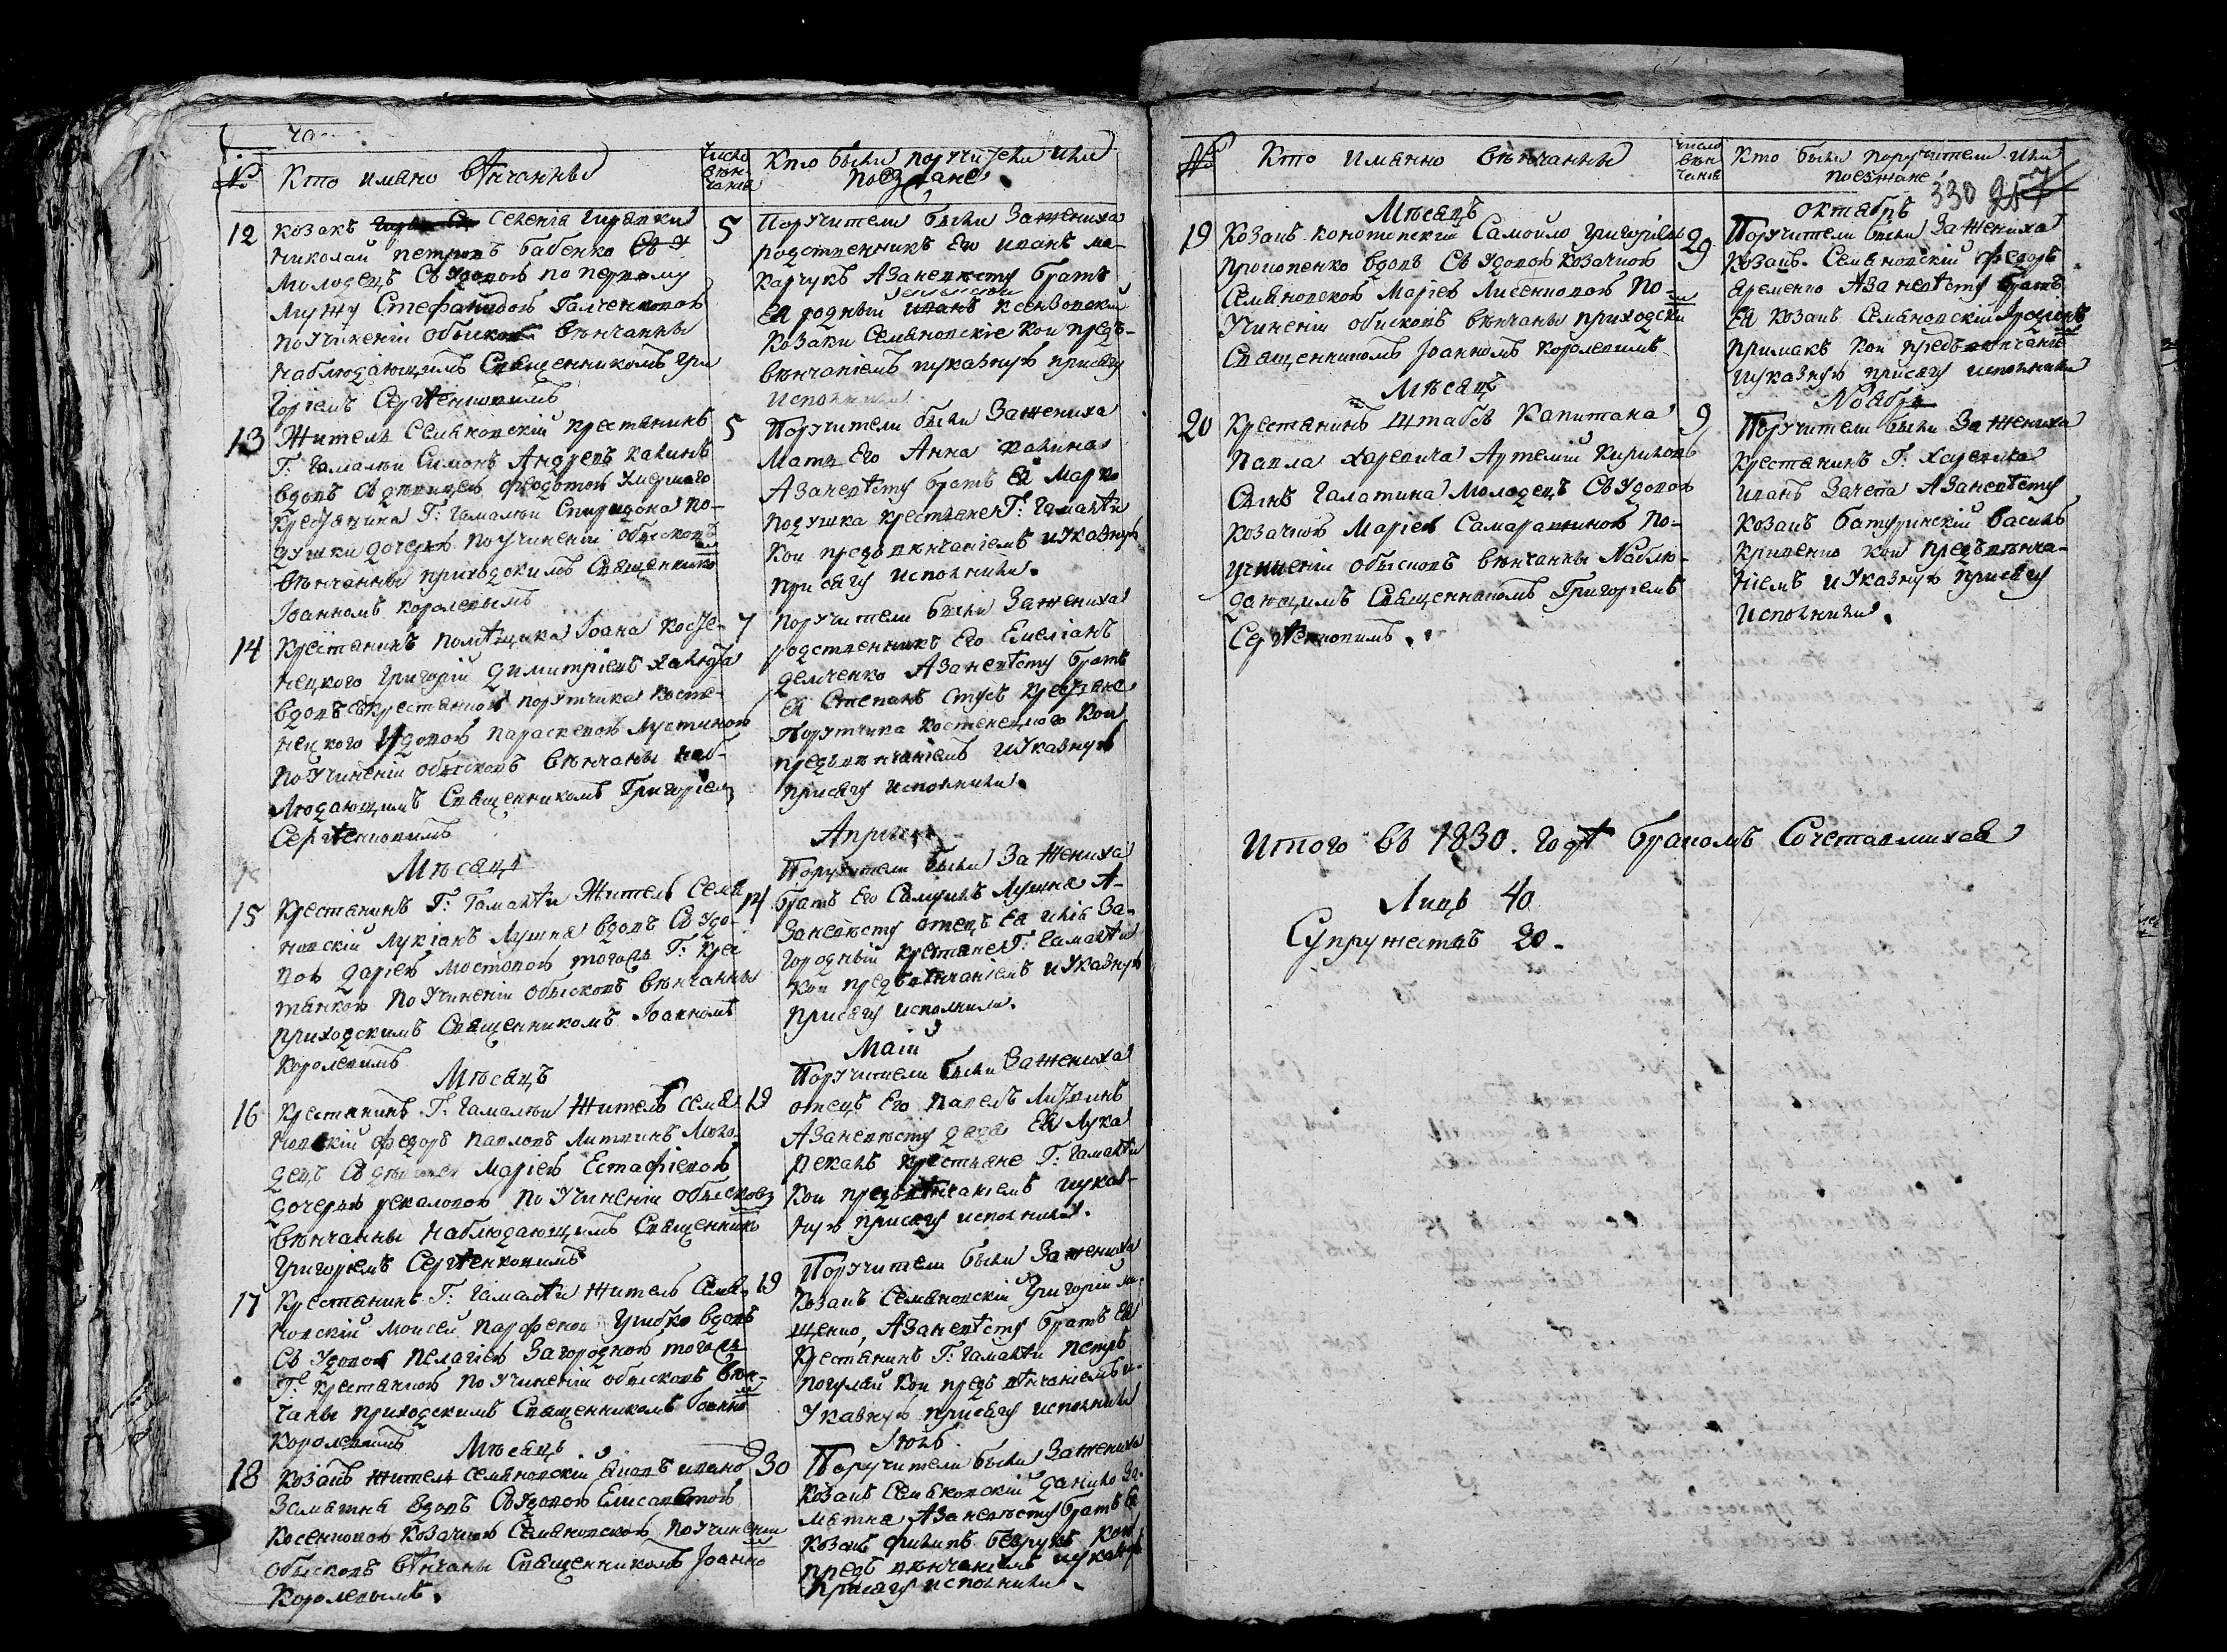 №
Кто имяно вѣнчанны
число вѣнчанія
Кто были поручители или
поезжане.
12 козакъ Селенія Гирявки
Николай Петровъ Бабенко
молодецъ съ удовою по первому
мужу Стефанидою Галченковою
по учиненіи обысковъ вѣнчанны
наблюдающимъ Священникомъ Гри
горіемъ Сергѣенковимъ
5
Поручители были За жениха
родственникъ Его иванъ ма-
карчукъ А За невѣсту братъ
Ея родный Ксензовскій
козаки Семяновскіе кои предъ-
вѣнчаніемъ иуказную присягу
исполнили
13 Житель Семяновскій крестянинъ
Г: Гамалѣи Симонъ Андреевъ Калинъ
вдовъ съ девицею Феодотою умершаго
крестянина Г: Гамалѣи Спиридона По-
душки дочерью по учиненіи обысковъ
вѣнчанны приходскимъ Священнико
Іоанномъ королевымъ
5
Поручители были За жениха
Мать Его Анна Калина
А За невѣсту братъ Ея Марко
Подушка крестяне Г: Гамалѣи
кои предъ вѣнчаніемъ иуказную
присягу исполнили.
14 Крестянинъ помѣщика Іоана Косте-
нецкого Григорій Димитріевъ
вдовъ съ крестянкою порутчика Косте-
нецкого удовою Параскевою
по учиненіи обысковъ вѣнчаны наб-
людающимъ Священникомъ Григоріем
Сергѣенковимъ
7
поручители были За жениха
родственникъ Его Емеліанъ
демченко А За невѣсту братъ
Ея Степанъ Стусь крестяне
Порутчика Костенецкого кои
предъ вѣнчаніемъ иуказную
присягу исполнили.
Мѣсяцъ
Априль
15 Крестянинъ Г: Гамалѣи Житель Семя
новскій Лукіанъ Лушня вдовъ съ удо-
вою Даріею Мостовою того Г: крес
тянкою по учиненіи обысковъ вѣнчанны
приходскимъ Священникомъ Іоанномъ
Королевимъ
14
Поручители были За жениха
братъ Его Лушня А-
За невѣсту отецъ Ея Илія За-
городный крестяне Г: Гамалѣи
кои предъ вѣнчаніемъ иуказную
присягу исполнили.
Мѣсяцъ
Маій
16 Крестянинъ Г: Гамалѣи Житель Семя
новскій Федоръ Павловъ Литвинъ моло
децъ съ девицею Маріею Естафіевою
дочерью рекаловою по учиненіи обысковъ
вѣнчанны наблюдающимъ Священнико
Григоріемъ Сергѣенковимъ
19
Поручители были За жениха
отецъ Его Павелъ Литвинъ
А За невѣсту дядя Ея Лука
рекалъ крестьяне Г: Гамалѣи
кои предъ вѣнчаніемъ иуказ-
ную присягу исполнили.
17 Крестянинъ Г: Гамалѣи Житель Семя-
новскій Моисей Парфенов вдовъ
съ удовою Пелагіею Загородною
Г: крестянкою по учиненіи обысковъ вѣн-
чаны приходскимъ Священникомъ Іоанно
Королевимъ
19
Поручители были За жениха
козакъ Семяновскій Григорій
щенко, А За невѣсту братъ Ея
Крестянинъ Г: Гамалѣи Петръ
Погуляй кои предъ вѣнчаніемъ и-
указную присягу исполнили
Мѣсяцъ
Іюль
18 Козакъ житель Семяновскій
Замятня вдовъ съ удовою Елисаветою
Косенковою козачкою Семяновскою по учиненіи
обысковъ вѣнчаны Священникомъ Іоанно
Королевымъ.
30
Поручители были За жениха
Козакъ Семяновскій Данило За-
мятня А За невѣсту братъ Ея
козакъ Филипъ Безрукъ кои
предъ вѣнчаніемъ иуказную
присягу исполнили.
№
Кто имянно вѣнчанны
число вѣнчанія
Кто были поручители или
поезжане
330 257
Мѣсяцъ
октябрь
19 Козакъ конотопскій Самойло Григоріевъ
Прокопенко вдовъ съ удовою козачкою
Семяновскою Маріею Лисенковою по-
учиненіи обысковъ вѣнчаны приходски
Священникомъ Іоанномъ королевимъ
29
Поручители были За жениха
козакъ Семяновскій Федоръ
Яременко А За невѣсту братъ
Ея козакъ Семяновскій
Примакъ кои предъ вѣнчаніе
иуказную присягу исполнили
Мѣсяцъ
Ноябрь
20 Крестянинъ штабсъ капитана
Павла Харевича Артемій Кириловъ
Сынъ Галатина молодецъ съ удовою
козачкою Маріею по-
учиненіи обысковъ вѣнчанны наблю-
дающимъ Священникомъ Григоріемъ
Сергѣенковимъ.
9
Поручители были За жениха
крестянинъ Г: Харевича
иванъ Зачепа А За невѣсту
козакъ батуринскій василь
кривенко кои предъ вѣнча-
ніемъ иуказную присягу
исполнили.
Итого въ 1830. годѣ бракомъ Сочетавшихся
Лицъ 40
Супружествъ 20.